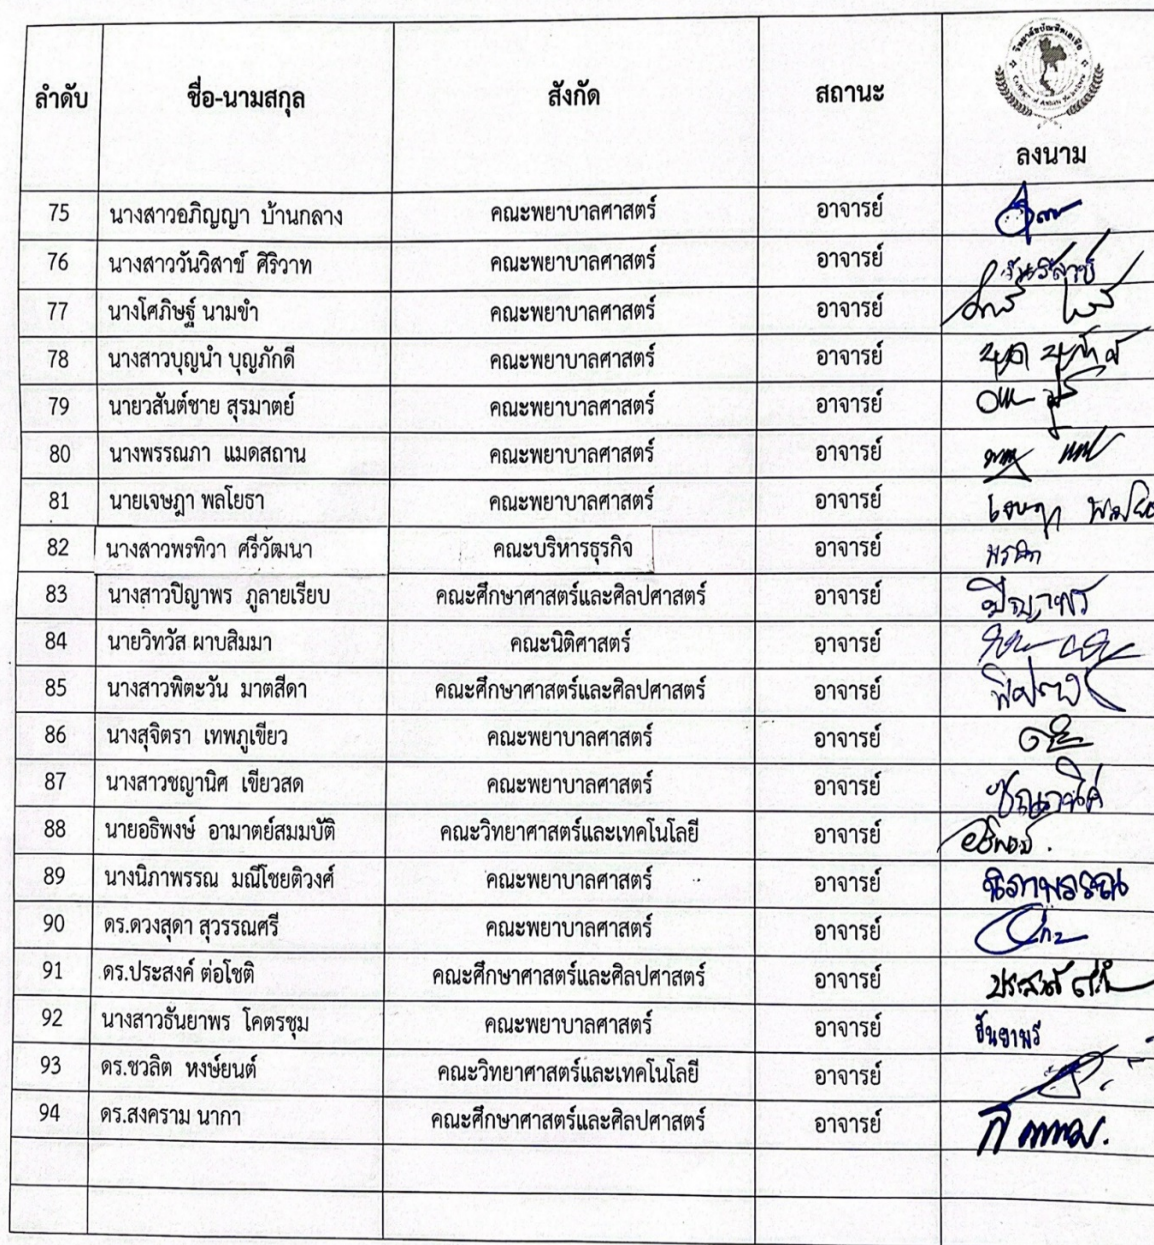 วิทยาลัยบัณฑิตเอเซีย
ลำดับ ชื่อ-นามสกุล สังกัด สถานะ ลงนาม
75 นางสาวอภิญญา บ้านกลาง คณะพยาบาลศาสตร์ อาจารย์
76 นางสาววันวิสาข์ ศิริวาท คณะพยาบาลศาสตร์ อาจารย์ วันวิสาข์
77 นางโศภิษฐ์ นามขำ คณะพยาบาลศาสตร์ อาจารย์
78 นางสาวบุญนำ บุญภักดี คณะพยาบาลศาสตร์ อาจารย์
79 นายวสันต์ชาย สุรมาตย์ คณะพยาบาลศาสตร์ อาจารย์
80 นางพรรณภา แมดสถาน คณะพยาบาลศาสตร์ อาจารย์
81 นายเจษฎา พลโยธา คณะพยาบาลศาสตร์ อาจารย์ เจษฎา
82 นางสาวพรทิวา ศรีวัฒนา คณะบริหารธุรกิจ อาจารย์
83 นางสาวปิญาพร ภูลายเรียบ คณะศึกษาศาสตร์และศิลปศาสตร์ อาจารย์ ปิญาพร
84 นายวิทวัส ผาบสิมมา คณะนิติศาสตร์ อาจารย์
85 นางสาวพิตะวัน มาตสีดา คณะศึกษาศาสตร์และศิลปศาสตร์ อาจารย์
86 นางสุจิตรา เทพภูเขียว คณะพยาบาลศาสตร์ อาจารย์
87 นางสาวชญานิศ เขียวสด คณะพยาบาลศาสตร์ อาจารย์ ชญานิศ
88 นายอธิพงษ์ อามาตย์สมมบัติ คณะวิทยาศาสตร์และเทคโนโลยี อาจารย์ อธิพงษ์
89 นางนิภาพรรณ มณีโชยติวงศ์ คณะพยาบาลศาสตร์ อาจารย์ นิภาพรรณ
90 ดร.ดวงสุดา สุวรรณศรี คณะพยาบาลศาสตร์ อาจารย์
91 ดร.ประสงค์ ต่อโชติ คณะศึกษาศาสตร์และศิลปศาสตร์ อาจารย์ ประสงค์
92 นางสาวธันยาพร โคตรชุม คณะพยาบาลศาสตร์ อาจารย์ ธันยาพร
93 ดร.ชวลิต หงษ์ยนต์ คณะวิทยาศาสตร์และเทคโนโลยี อาจารย์
94 ดร.สงคราม นากา คณะศึกษาศาสตร์และศิลปศาสตร์ อาจารย์